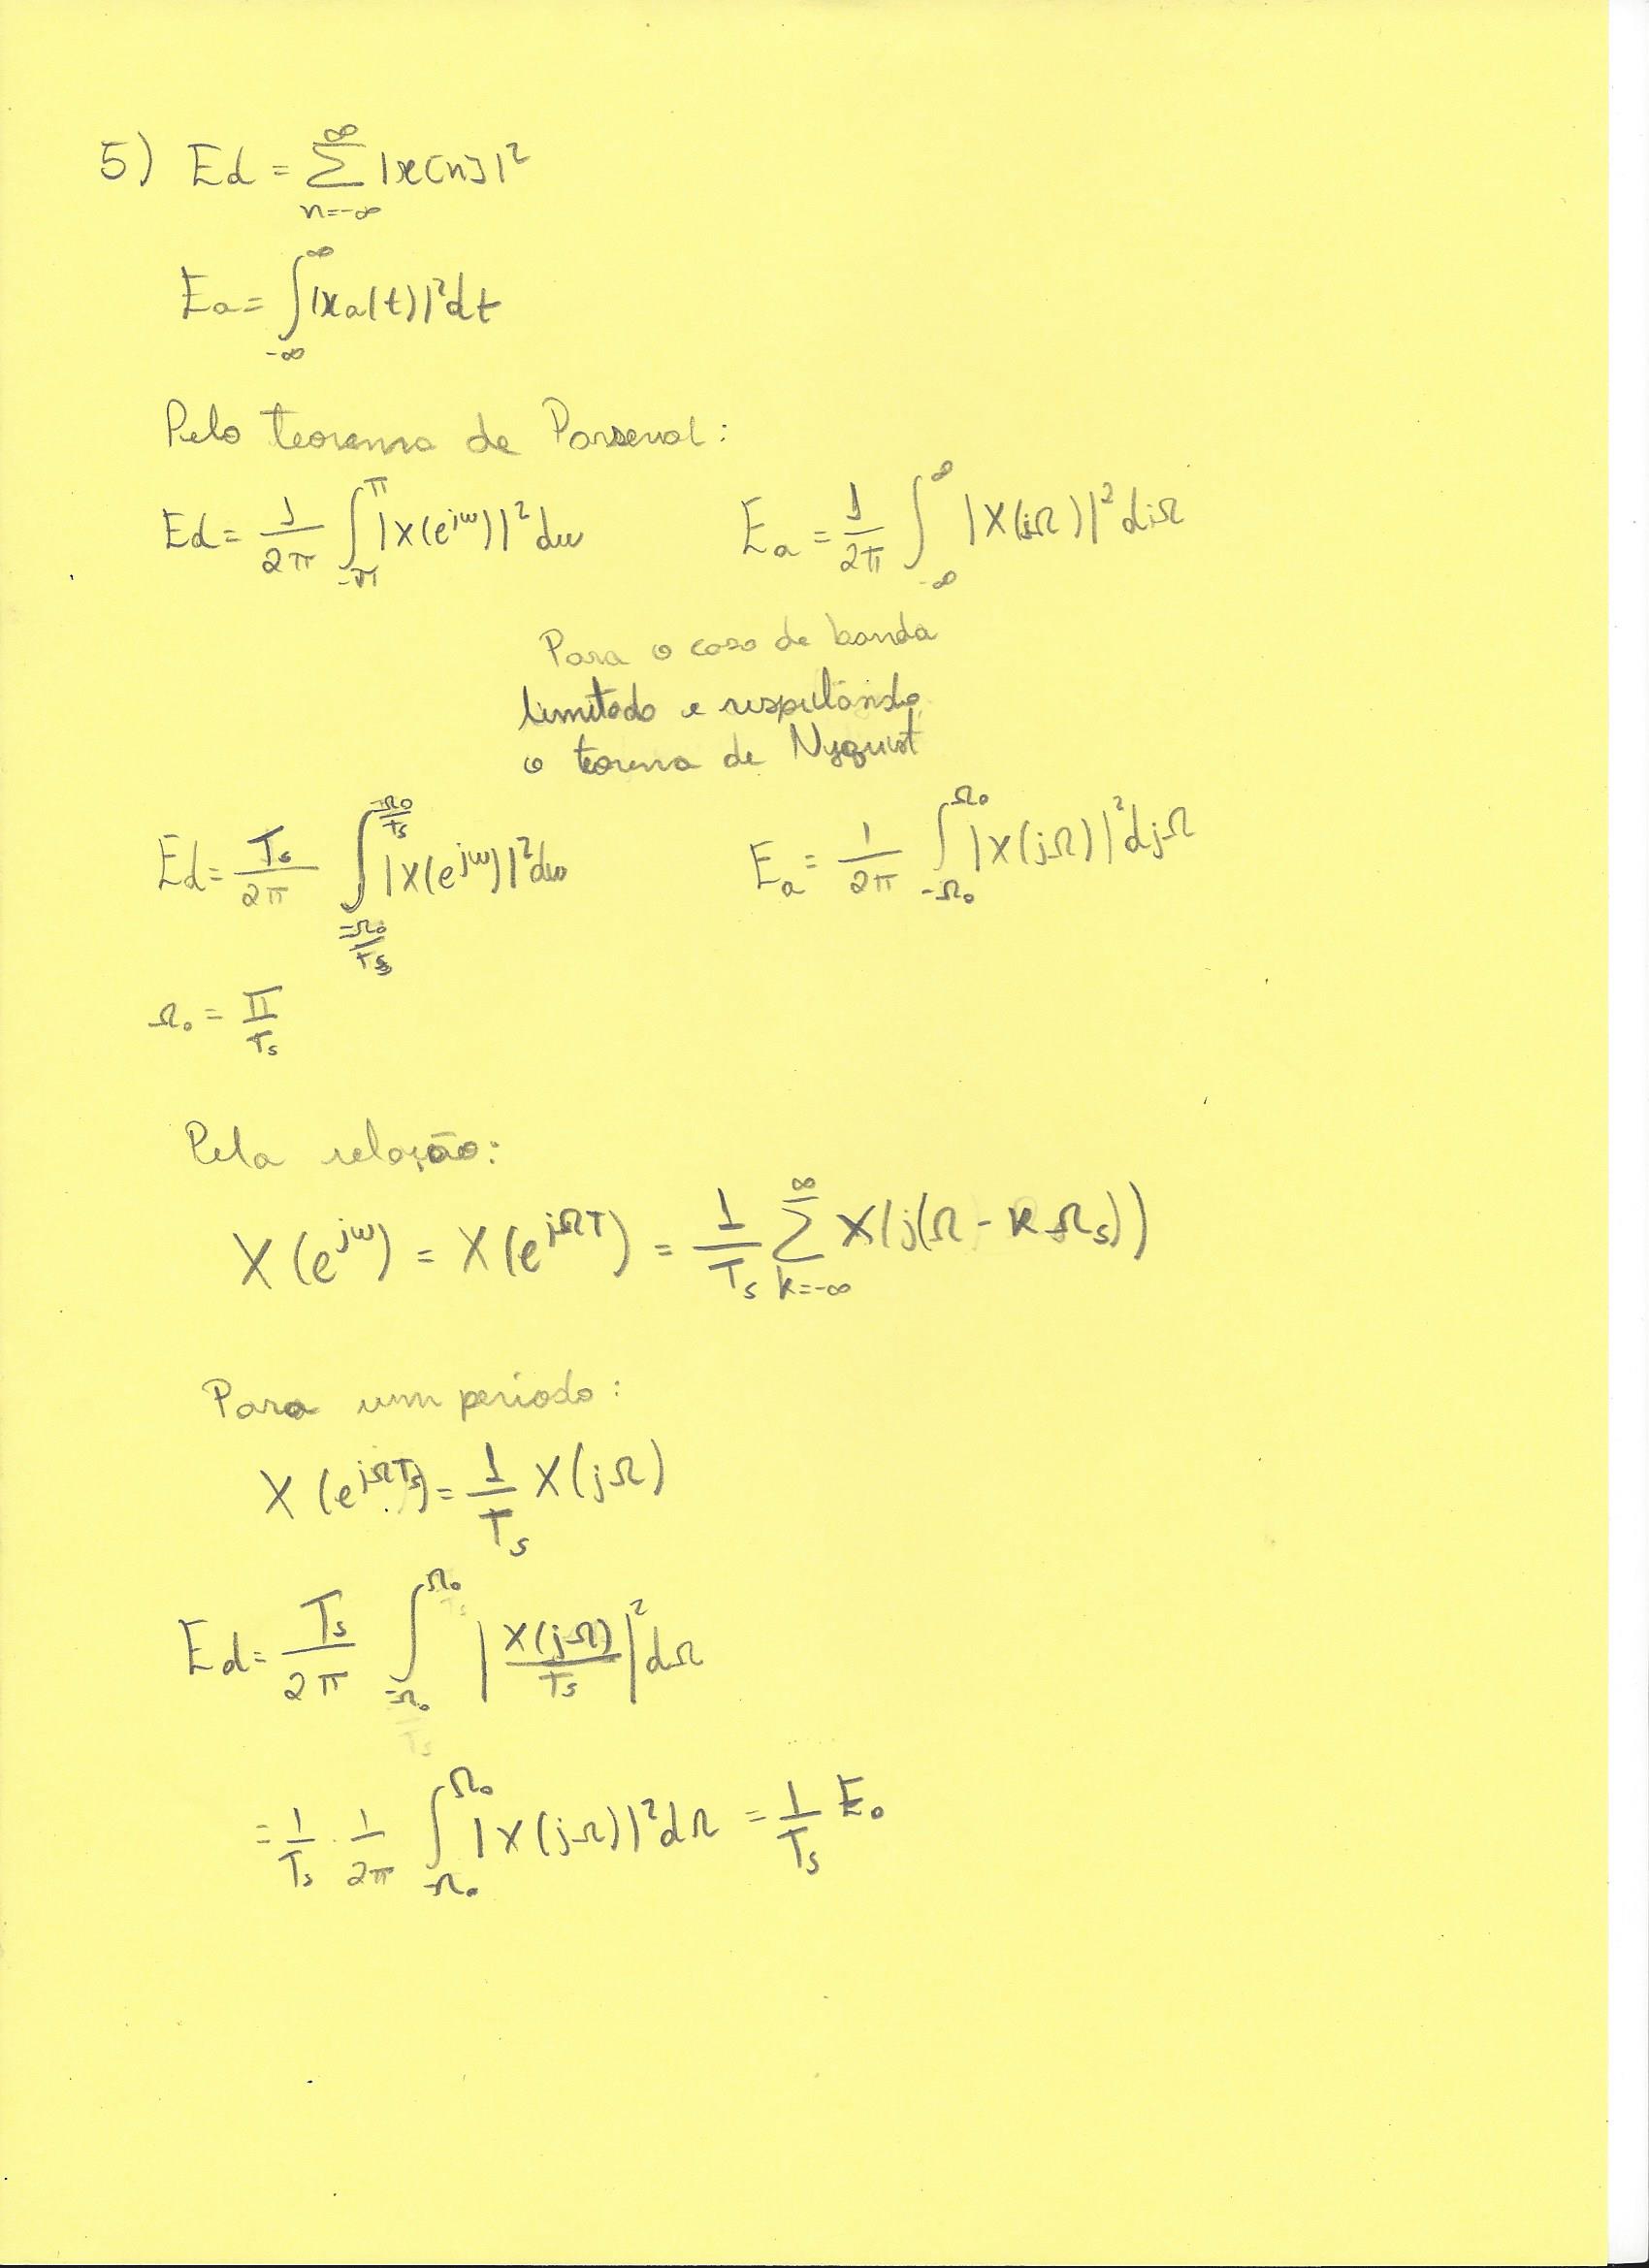 5) Ed = ∑_{n=-∞}^{∞} |x[n]|²
Ea = ∫_{-∞}^{∞} |xa(t)|² dt
Pelo teorema de Parseval:
Ed = 1/2π ∫_{-π}^{π} |X(e^{jω})|² dω    Ea = 1/2π ∫_{-∞}^{∞} |X(jΩ)|² djΩ
Para o caso de banda
limitado e respeitando
o teorema de Nyquist
Ed = Ts/2π ∫_{-Ω0/Ts}^{Ω0/Ts} |X(e^{jω})|² dω    Ea = 1/2π ∫_{-Ω0}^{Ω0} |X(jΩ)|² djΩ
Ω0 = π/Ts
Pela relação:
X(e^{jω}) = X(e^{jΩT}) = 1/Ts ∑_{k=-∞}^{∞} X(j(Ω - kΩs))
Para um período:
X(e^{jΩTs}) = 1/Ts X(jΩ)
Ed = Ts/2π ∫_{-Ω0}^{Ω0} |X(jΩ)/Ts|² dΩ
= 1/Ts · 1/2π ∫_{-Ω0}^{Ω0} |X(jΩ)|² dΩ = 1/Ts Ea